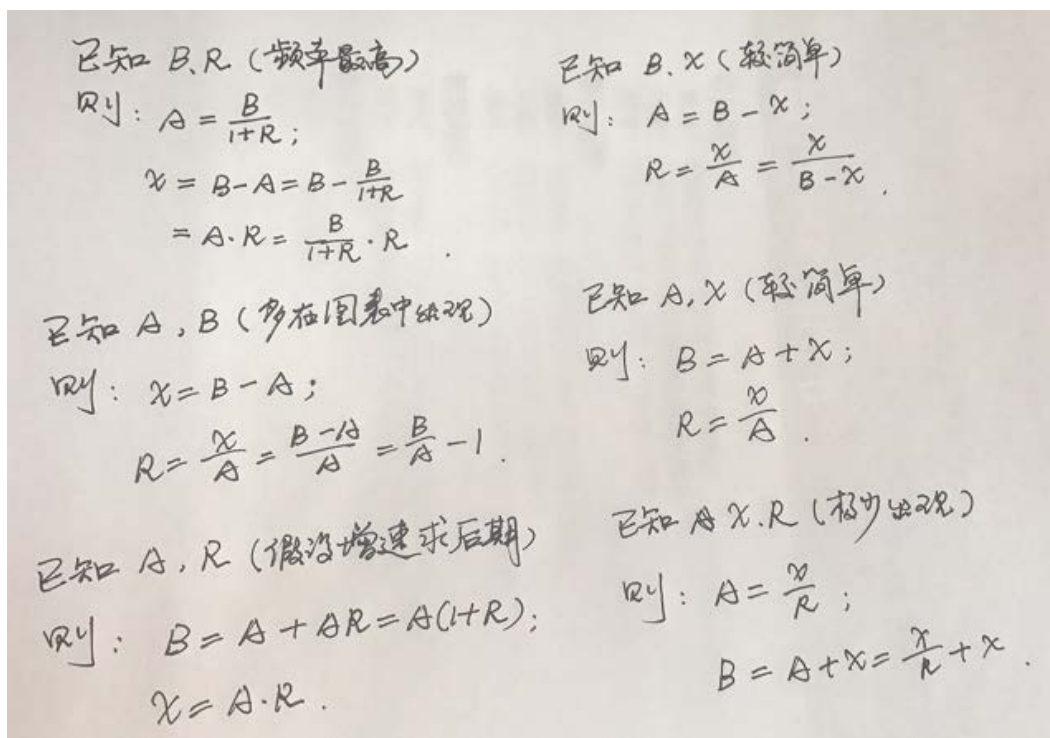 已知 B.R（频率最高）
则：A = B/(1+R)；
x = B-A = B - B/(1+R)
= A·R = B/(1+R)·R .
已知 A，B（多在图表中出现）
则：x = B-A；
R = x/A = (B-A)/A = B/A - 1 .
已知 A，R（假设增速求后期）
则：B = A + AR = A(1+R)；
x = A·R .
已知 B.x（较简单）
则：A = B - x；
R = x/A = x/(B-x) .
已知 A，x（较简单）
则：B = A + x；
R = x/A .
已知 x.R（极少出现）
则：A = x/R；
B = A + x = x/R + x .